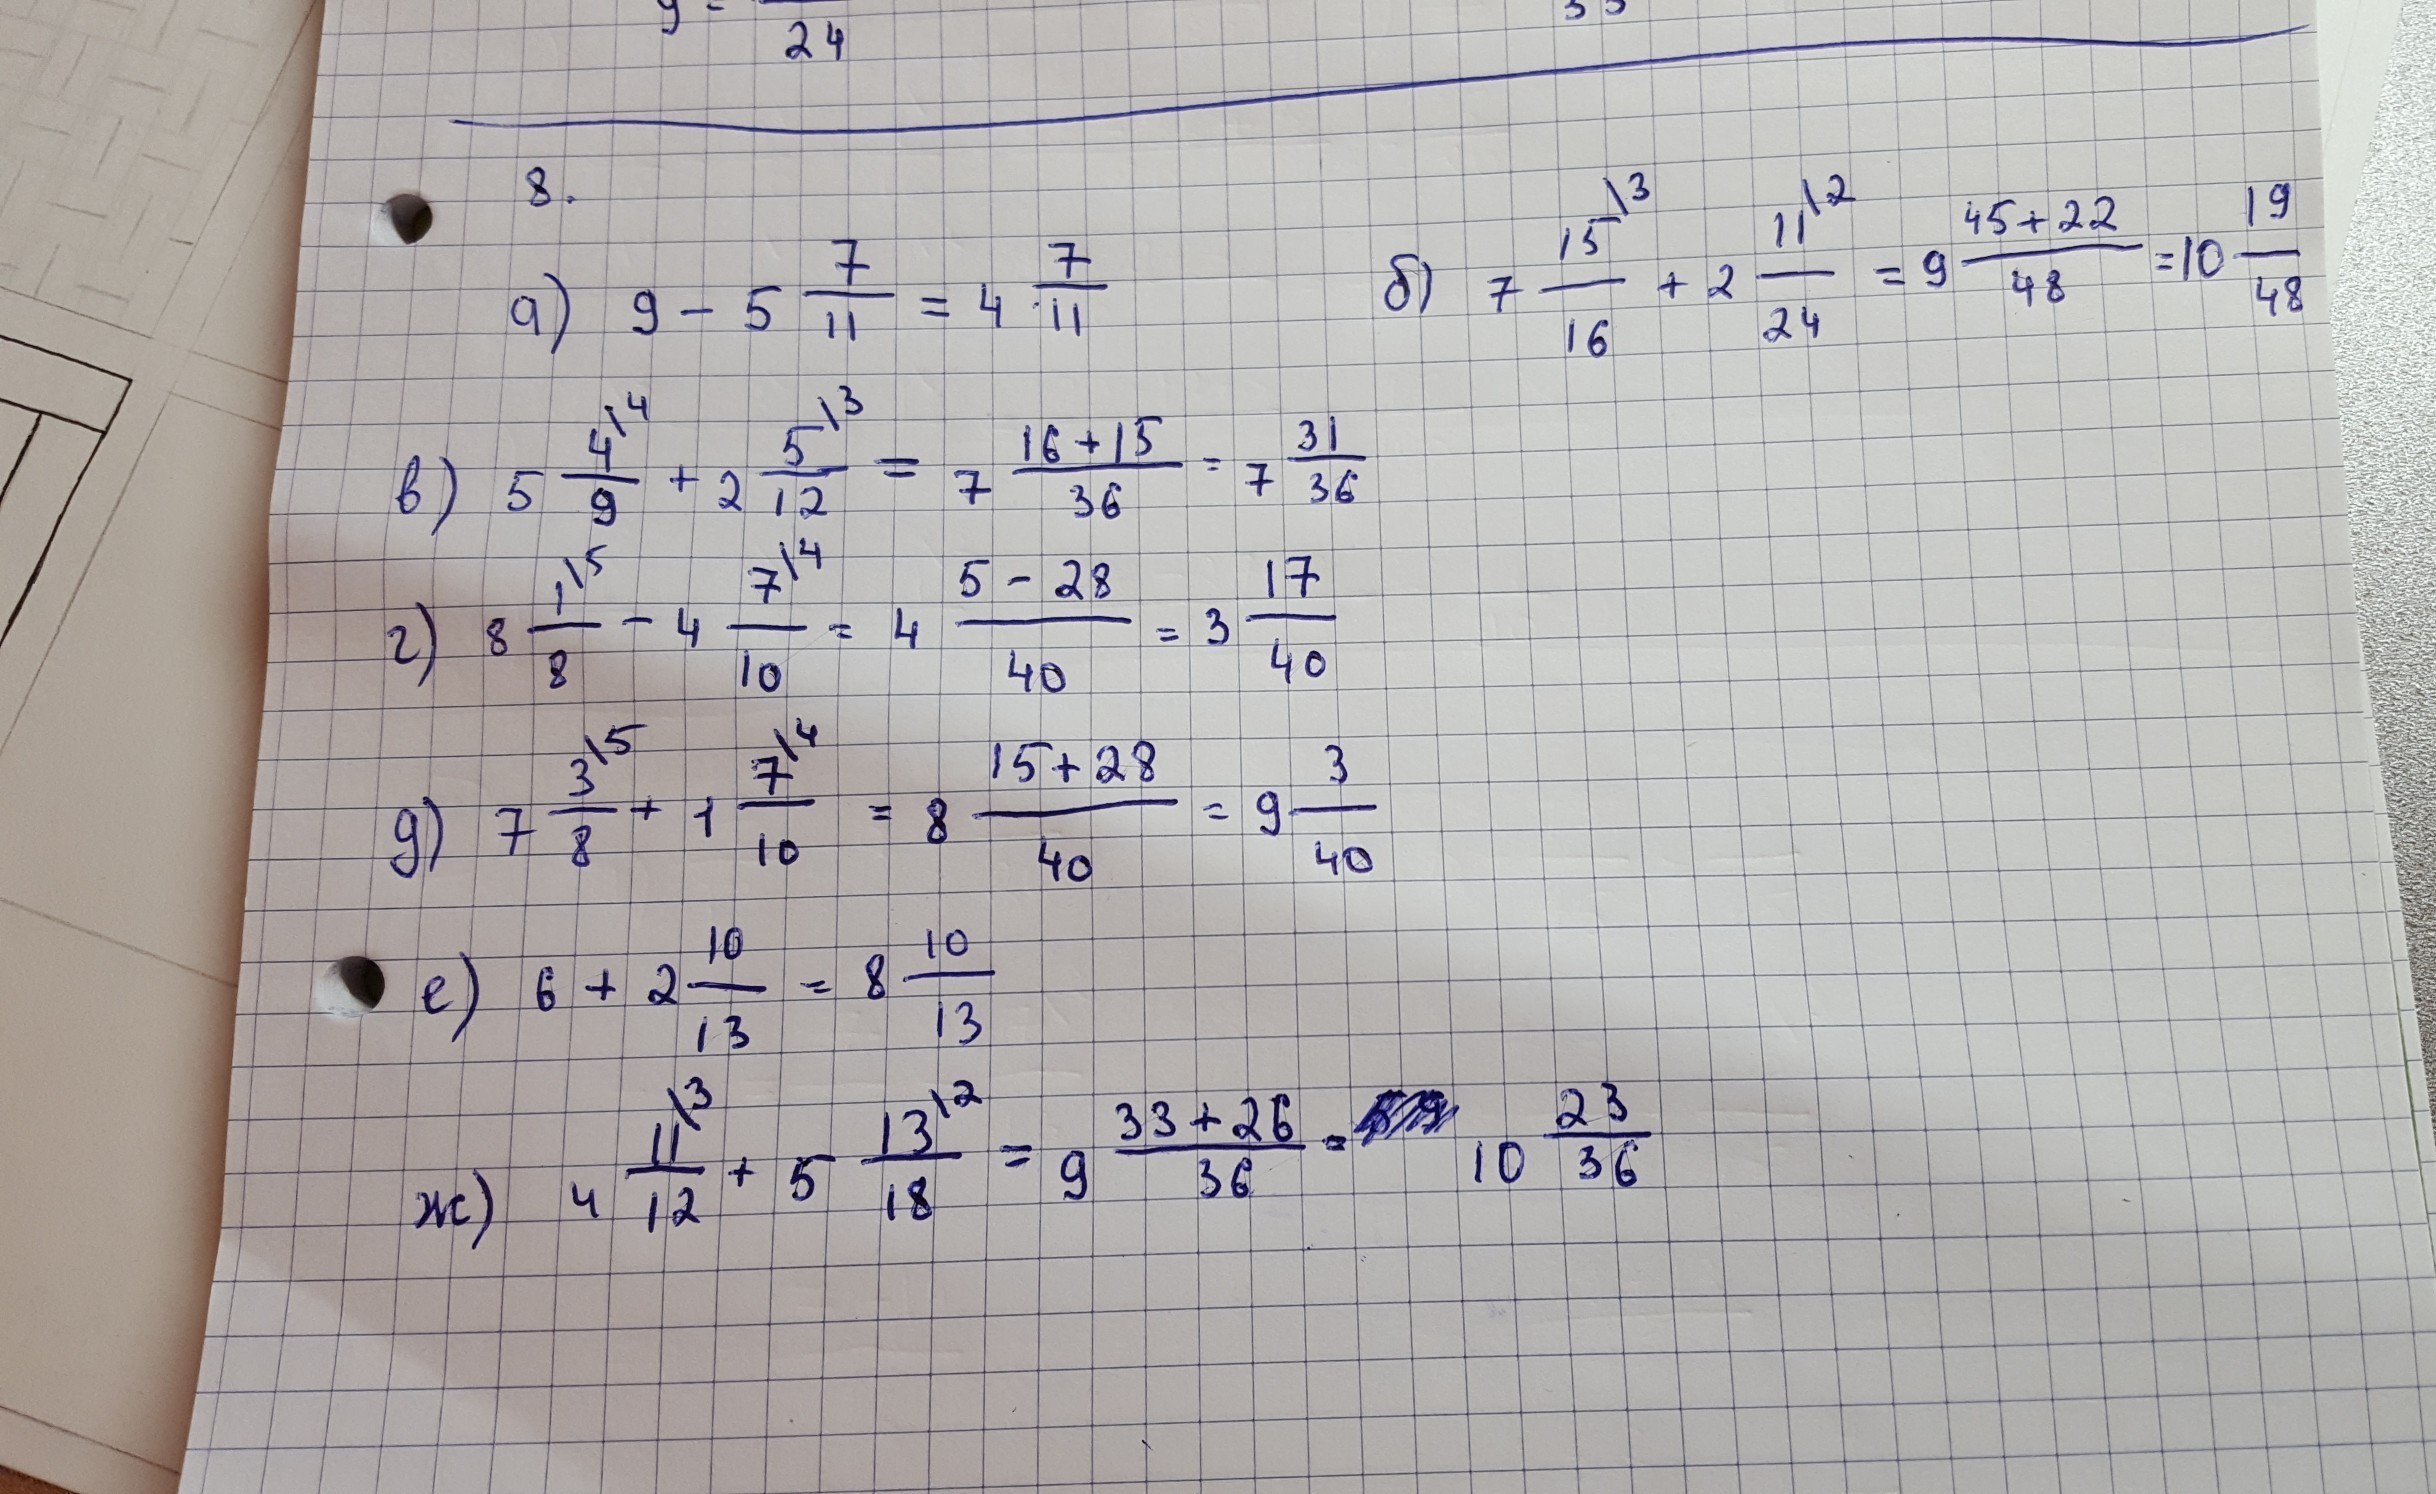 24
8.
а) 9 - 5 7/11 = 4 7/11
б) 7 15\3/16 + 2 11\2/24 = 9 45+22/48 = 10 19/48
в) 5 4\4/9 + 2 5\3/12 = 7 16+15/36 = 7 31/36
г) 8 1\5/8 - 4 7\4/10 = 4 5-28/40 = 3 17/40
д) 7 3\5/8 + 1 7\4/10 = 8 15+28/40 = 9 3/40
е) 6 + 2 10/13 = 8 10/13
ж) 4 11\3/12 + 5 13\2/18 = 9 33+26/36 = 10 23/36